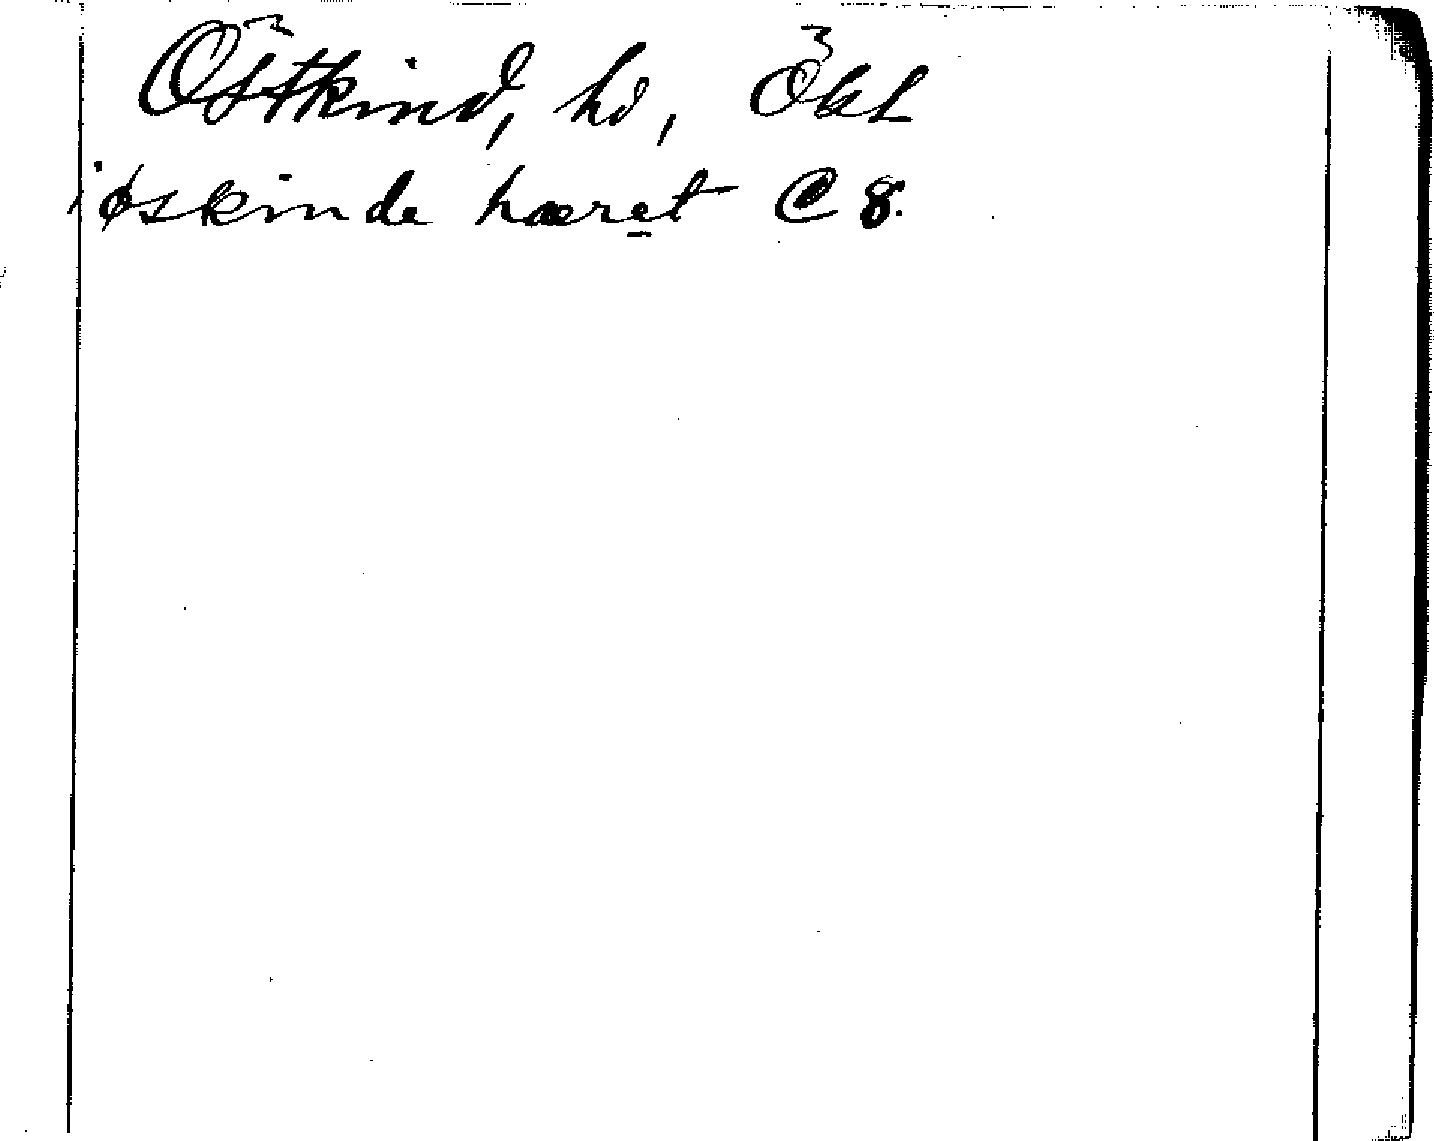 Östkind, hd, Ögl
i øskinde hæret C 8.